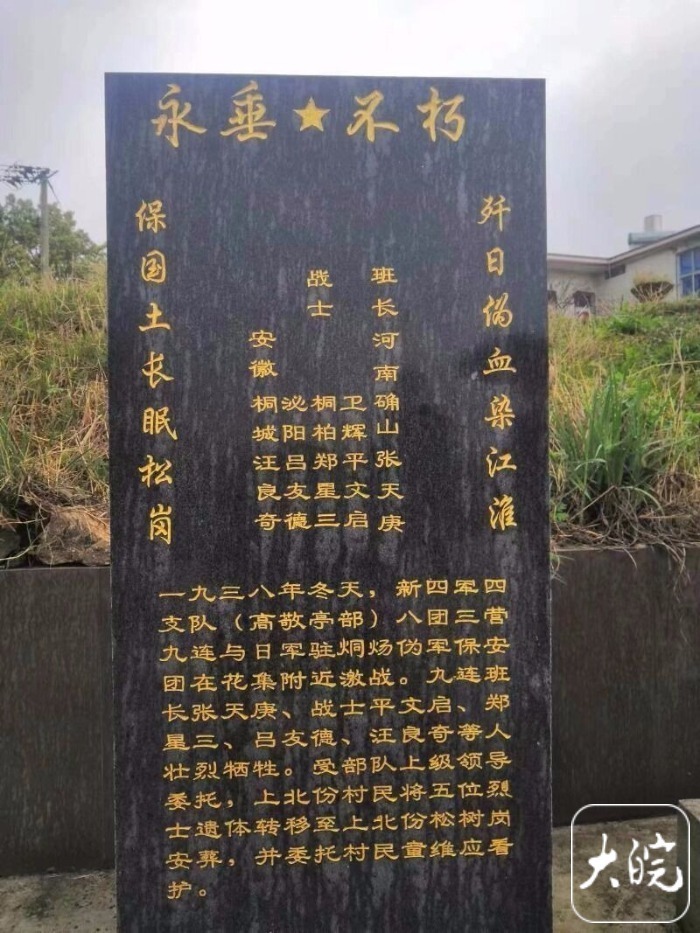 永垂★不朽
歼日伪血染江淮
班长河南确山张天庚
卫辉平文启
战士桐柏郑星三
泌阳吕友德
安徽桐城汪良奇
保国土长眠松岗
一九三八年冬天，新四军四
支队（高敬亭部）八团三营
九连与日军驻炯炀伪军保安
团在花集附近激战。九连班
长张天庚、战士平文启、郑
星三、吕友德、汪良奇等人
壮烈牺牲。受部队上级领导
委托，上北份村民将五位烈
士遗体转移至上北份松树岗
安葬，并委托村民童维应看
护。
大皖